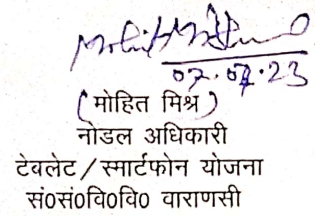 07.07.23
(मोहित मिश्र)
नोडल अधिकारी
टेबलेट/स्मार्टफोन योजना
सं०सं०वि०वि० वाराणसी